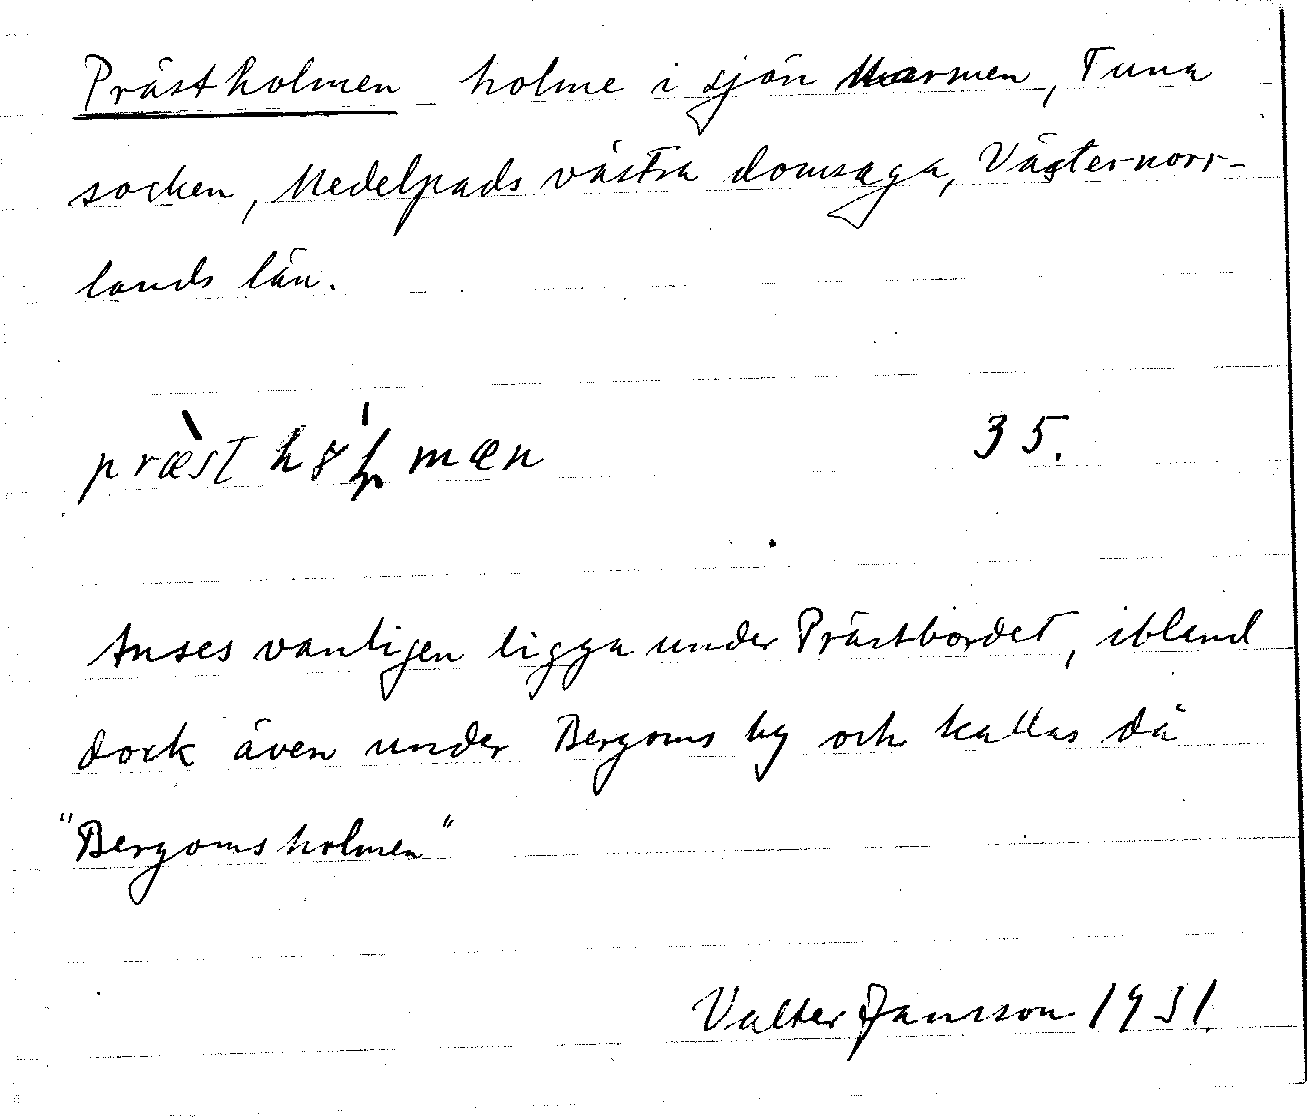 Prästholmen holme i sjön Marmen, Tuna
socken, Medelpads västra domsaga, Västernorr-
lands län.
præ̀st h8ɭ́mæn 35.
Anses vanligen ligga under Prästbordet, ibland
dock även under Bergoms by och kallas då
"Bergomsholmen"
Valter Jansson 1931.